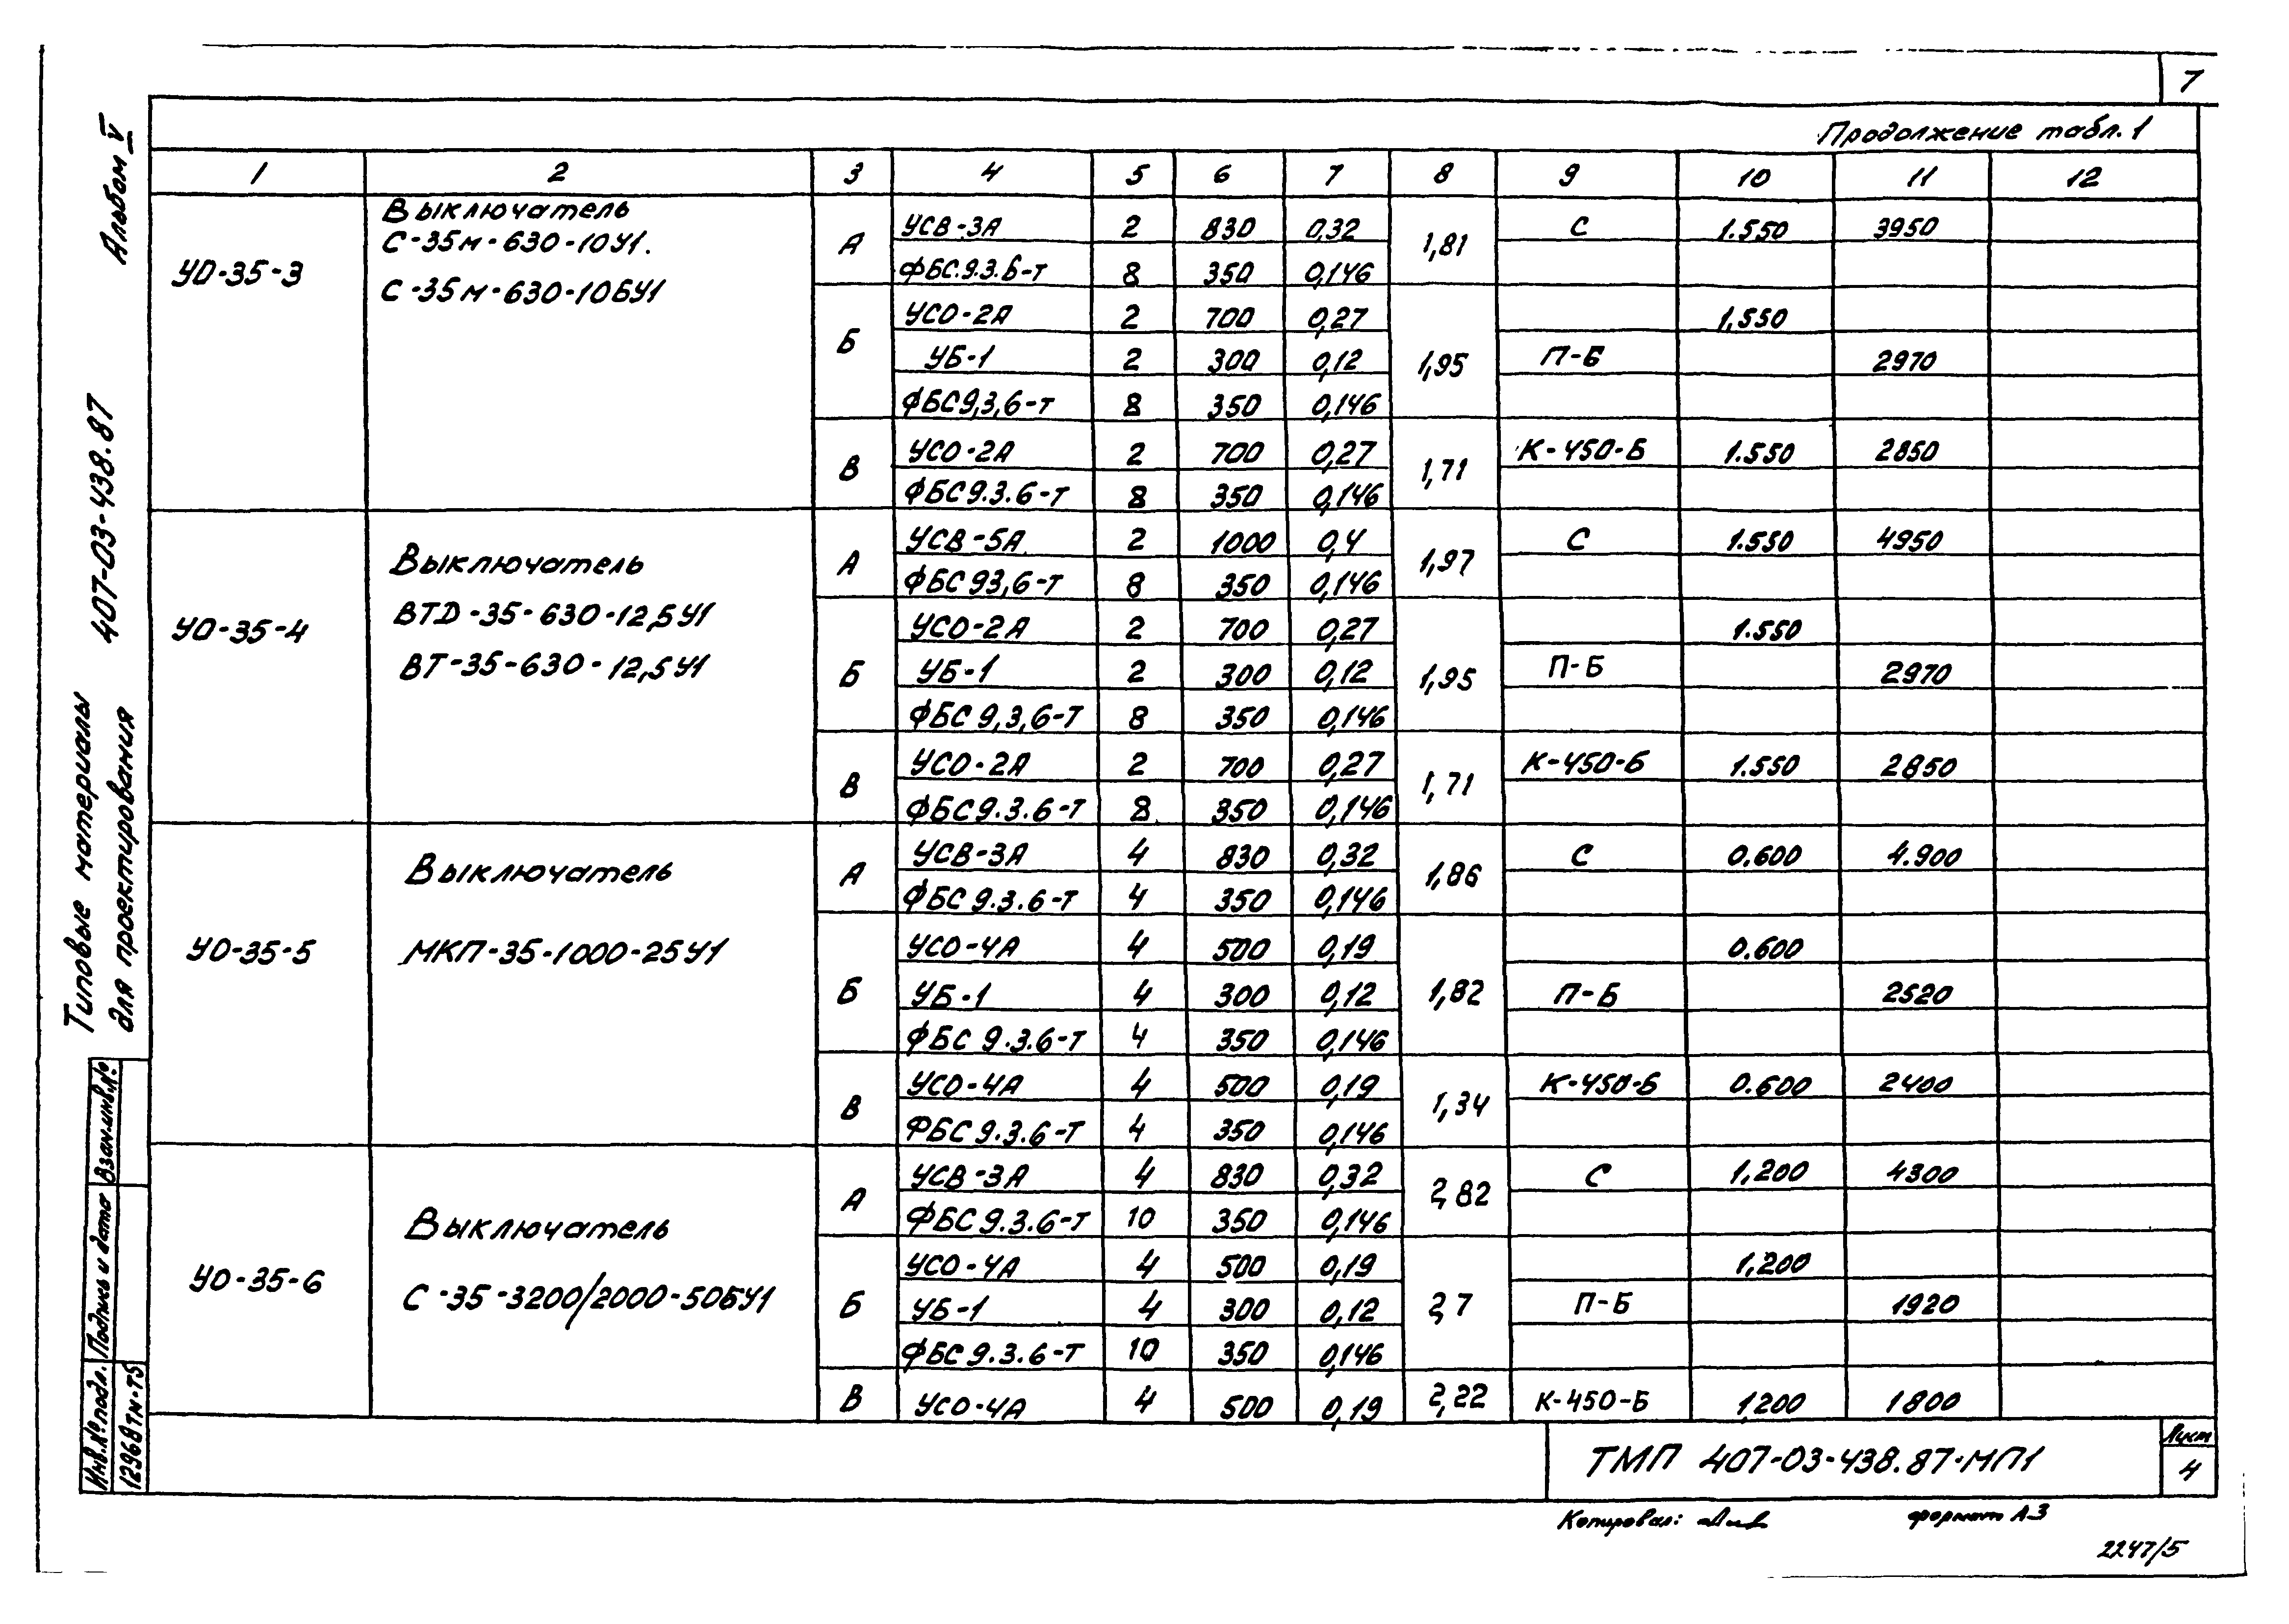 7
Продолжение табл. 1
1 2 3 4 5 6 7 8 9 10 11 12
УО-35-3
Выключатель
С-35м-630-10У1.
С-35м-630-10БУ1
А
УСВ-3А 2 830 0,32 1,81 С 1.550 3950
ФБС.9.3.6-т 8 350 0,146
Б
УСО-2А 2 700 0,27 1,550
УБ-1 2 300 0,12 1,95 П-Б 2970
ФБС9,3,6-т 8 350 0,146
В
УСО-2А 2 700 0,27 1,71 К-450-Б 1.550 2850
ФБС9.3.6-т 8 350 0,146
УО-35-4
Выключатель
ВТД-35-630-12,5У1
ВТ-35-630-12,5У1
А
УСВ-5А 2 1000 0,4 1,97 С 1.550 4950
ФБС 93,6-т 8 350 0,146
Б
УСО-2А 2 700 0,27 1.550
УБ-1 2 300 0,12 1,95 П-Б 2970
ФБС 9,3,6-т 8 350 0,146
В
УСО-2А 2 700 0,27 1,71 К-450-Б 1.550 2850
ФБС9.3.6-т 8 350 0,146
УО-35-5
Выключатель
МКП-35-1000-25У1
А
УСВ-3А 4 830 0,32 1,86 С 0.600 4.900
ФБС 9.3.6-т 4 350 0,146
Б
УСО-4А 4 500 0,19 0.600
УБ-1 4 300 0,12 1,82 П-Б 2520
ФБС 9.3.6-т 4 350 0,146
В
УСО-4А 4 500 0,19 1,34 К-450-Б 0.600 2400
ФБС 9.3.6-т 4 350 0,146
УО-35-6
Выключатель
С-35-3200/2000-50БУ1
А
УСВ-3А 4 830 0,32 2,82 С 1,200 4300
ФБС 9.3.6-т 10 350 0,146
Б
УСО-4А 4 500 0,19 1,200
УБ-1 4 300 0,12 2,7 П-Б 1920
ФБС 9.3.6-т 10 350 0,146
В УСО-4А 4 500 0,19 2,22 К-450-Б 1200 1800
ТМП 407-03-438.87-МП1
Лист
4
Копировал:
формат А3
2247/5
Альбом V
Типовые материалы 407-03-438.87
для проектирования
Взам.инв.№
Подпись и дата
Инв.№ подл.
12968тм-т5